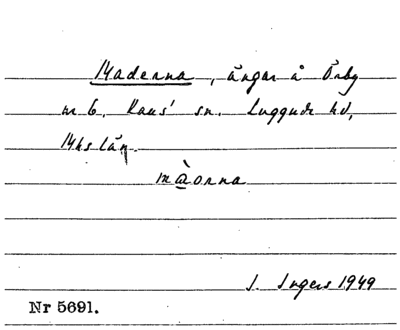 Maderna, ängar å Örby
nr 6. Kaus' sn. Luggude hd,
Mhs län.
màorna
I. Ingers 1949
Nr 5691.